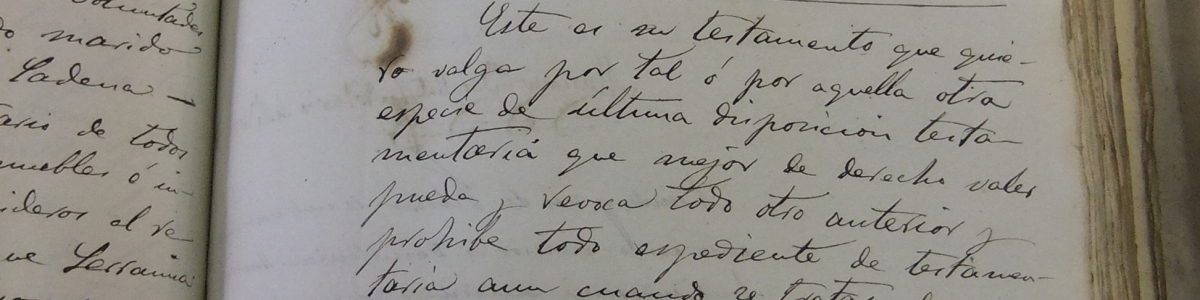 voluntades
do marido
Cadena —
ario de todos
muebles ó in-
ideros el re
Este es su testamento que quie-
ro valga por tal ó por aquella otra
especie de última disposición testa-
mentaria que mejor de derecho valer
pueda y revoca todo otro anterior y
prohibe todo espediente de testamen-
taria aun cuando se trate